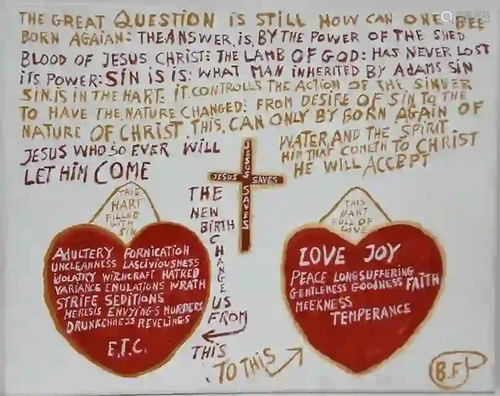 THE GREAT QUESTION IS STILL HOW CAN ONE BEE
BORN AGAIAN: THE ANSWER, IS, BY THE POWER OF THE SHED
BLOOD OF JESUS CHRIST: THE LAMB OF GOD: HAS NEVER LOST
ITS POWER: SIN IS IS: WHAT MAN INHERITED BY ADAMS SIN
SIN. IS IN THE HART: IT CONTROLLS THE ACTION OF THE SINNER
TO HAVE THE NATURE CHANGED: FROM DESIRE OF SIN TO THE
NATURE OF CHRIST THIS, CAN ONLY BY BORN AGAIN OF
WATER AND THE SPIRIT
JESUS WHO SO EVER WILL
HIM THAT COMETH TO CHRIST
LET HIM COME
HE WILL ACCEPT
JESUS SAVES
JESUS SAVES
THIS
HART
FILLED
WITH
SIN
ADULTERY FORNICATION
UNCLEANNESS LASCIVIOUSNESS
IDOLATRY WITCHCRAFT HATRED
VARIANCE EMULATIONS WRATH
STRIFE SEDITIONS
HERESIS ENVYING'S MURDERS
DRUNKENNESS REVELINGS
E.T.C.
THE
NEW
BIRTH
CHANGE
US
FROM
THIS
TO THIS
THIS
HART
FULL OF
LOVE
LOVE JOY
PEACE LONGSUFFERING
GENTLENESS GOODNESS FAITH
MEEKNESS
TEMPERANCE
B.F.P